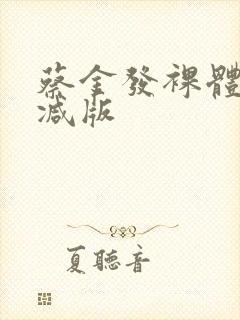 蔡金發裸體
减版
夏聽音